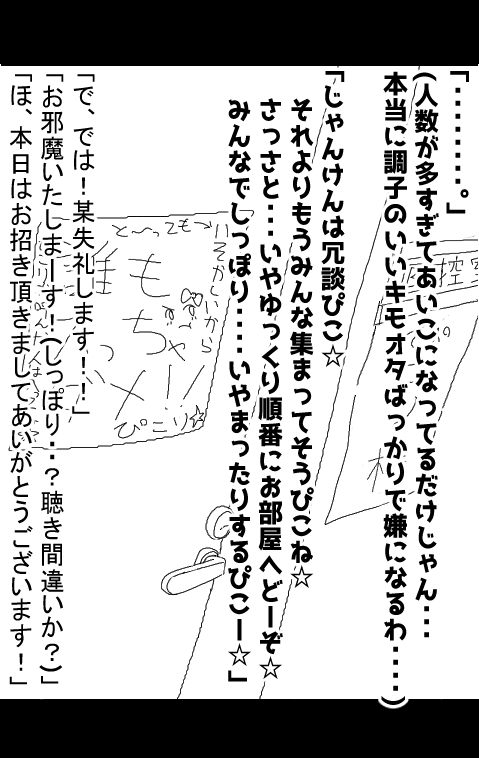 「・・・・・・・・・。」
(人数が多すぎてあいこになってるだけじゃん・・・
本当に調子のいいキモオタばっかりで嫌になるわ・・・・)
「じゃんけんは冗談ぴこ☆
それよりもうみんな集まってそうぴこね☆
さっさと・・・いやゆっくり順番にお部屋へどーぞ☆
みんなでしっぽり・・・・いやまったりするぴこー☆」
「で、では！某失礼します！！」
「お邪魔いたしまーす！(しっぽり・・？聴き間違いか？)」
「ほ、本日はお招き頂きましてあいがとうございます！」
控室
と〜っても→
いそがしいから
もぢゃ
メ!!
ぴこり☆